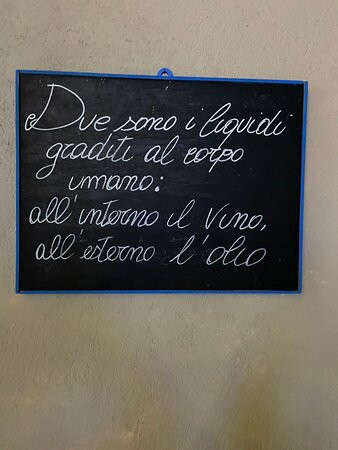 Due sono i liquidi
graditi al corpo
umano:
all'interno il vino,
all'esterno l'olio